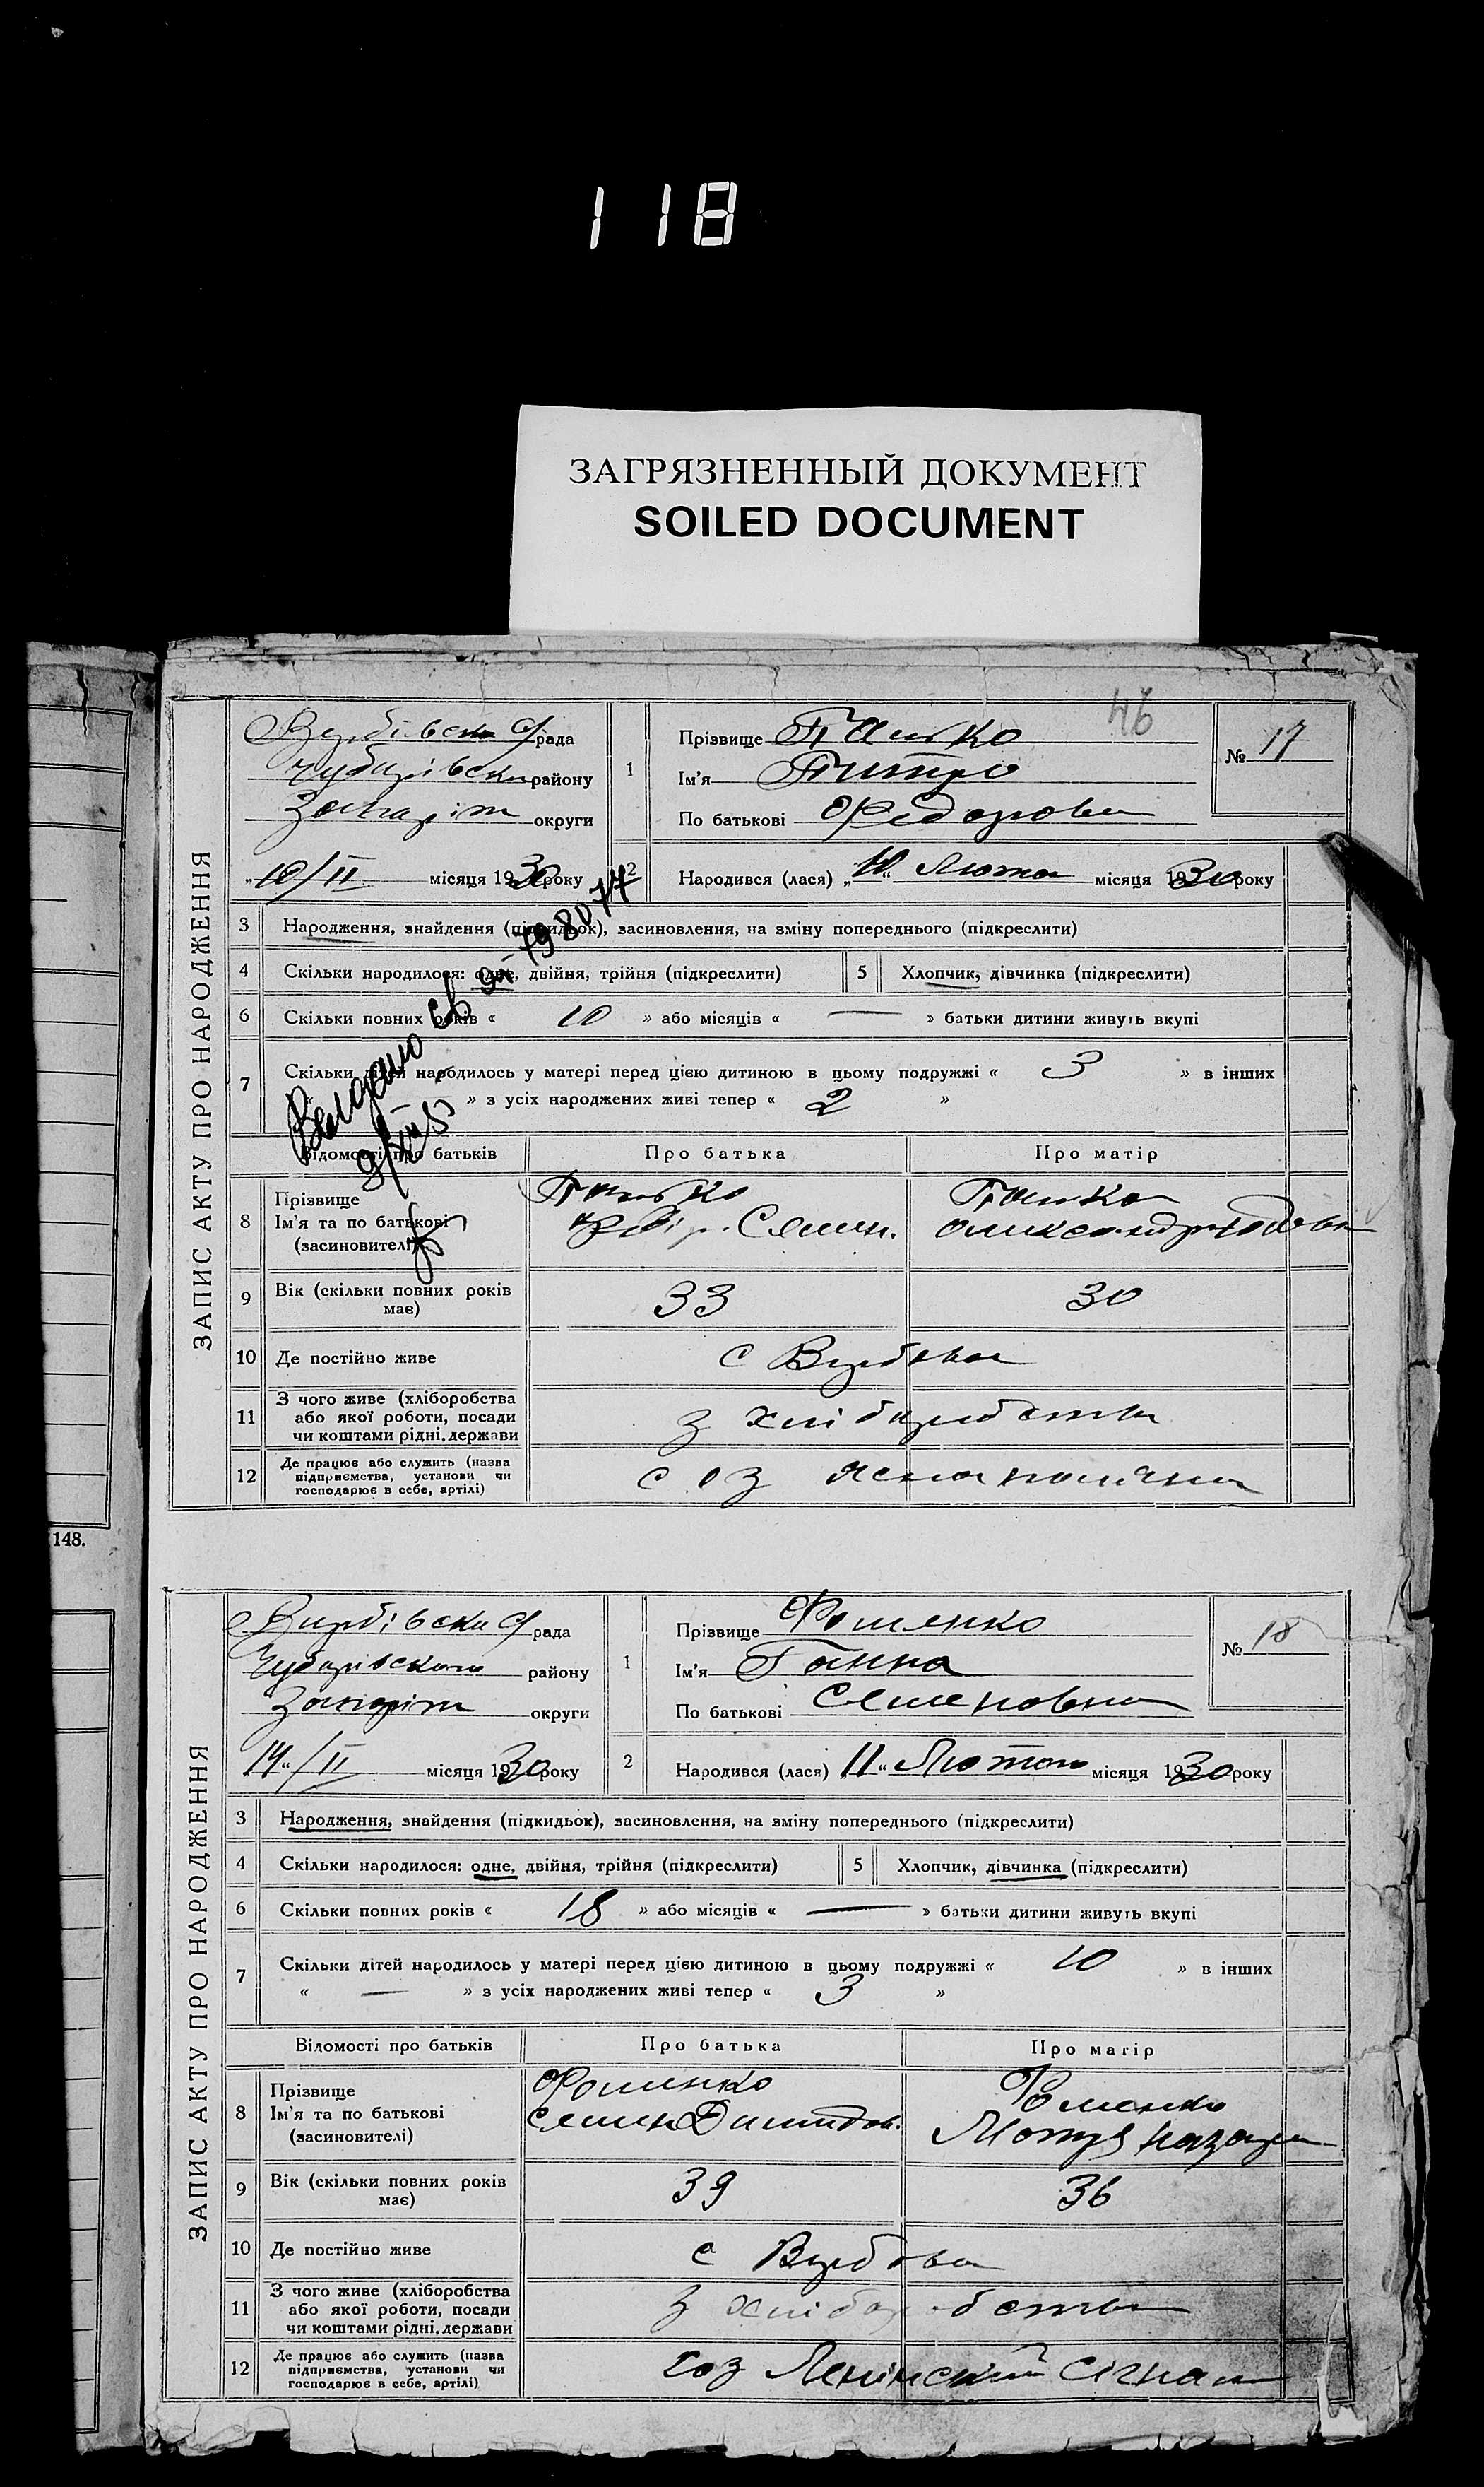 118
ЗАГРЯЗНЕННЫЙ ДОКУМЕНТ
SOILED DOCUMENT
148.
46
ЗАПИС АКТУ ПРО НАРОДЖЕННЯ
рада
району
округи
10/II місяця 1930 року
1
Прізвище
Ім'я
По батькові Федорович
№ 17
2
Народився (лася) місяця 1930 року
3 Народження, знайдення (підкидьок), засиновлення, на зміну попереднього (підкреслити)
4 Скільки народилося: одне, двійня, трійня (підкреслити)
5 Хлопчик, дівчинка (підкреслити)
6 Скільки повних років « 10 » або місяців « — » батьки дитини живуть вкупі
7 Скільки дітей народилось у матері перед цією дитиною в цьому подружжі « 3 » в інших
» з усіх народжених живі тепер « 2 »
Відомості про батьків Про батька Про матір
8 Прізвище
Ім'я та по батькові
(засиновителі)
9 Вік (скільки повних років має) 33 30
10 Де постійно живе с Вербова
11 З чого живе (хліборобства або якої роботи, посади чи коштами рідні, держави з хліборобства
12 Де працює або служить (назва підприємства, установи чи господарює в себе, артілі) соз Ясна поляна
ЗАПИС АКТУ ПРО НАРОДЖЕННЯ
рада
району
округи
14/II місяця 1930 року
1
Прізвище Фоменко
Ім'я Ганна
По батькові Семеновна
№ 18
2
Народився (лася) 11 Лютого місяця 1930 року
3 Народження, знайдення (підкидьок), засиновлення, на зміну попереднього (підкреслити)
4 Скільки народилося: одне, двійня, трійня (підкреслити)
5 Хлопчик, дівчинка (підкреслити)
6 Скільки повних років « 18 » або місяців « — » батьки дитини живуть вкупі
7 Скільки дітей народилось у матері перед цією дитиною в цьому подружжі « 10 » в інших
« — » з усіх народжених живі тепер « 3 »
Відомості про батьків Про батька Про матір
8 Прізвище Фоменко Фоменко
Ім'я та по батькові Семен
(засиновителі)
9 Вік (скільки повних років має) 39 36
10 Де постійно живе с Вербова
11 З чого живе (хліборобства або якої роботи, посади чи коштами рідні, держави з хліборобства
12 Де працює або служить (назва підприємства, установи чи господарює в себе, артілі) соз Ленінский Сігнал